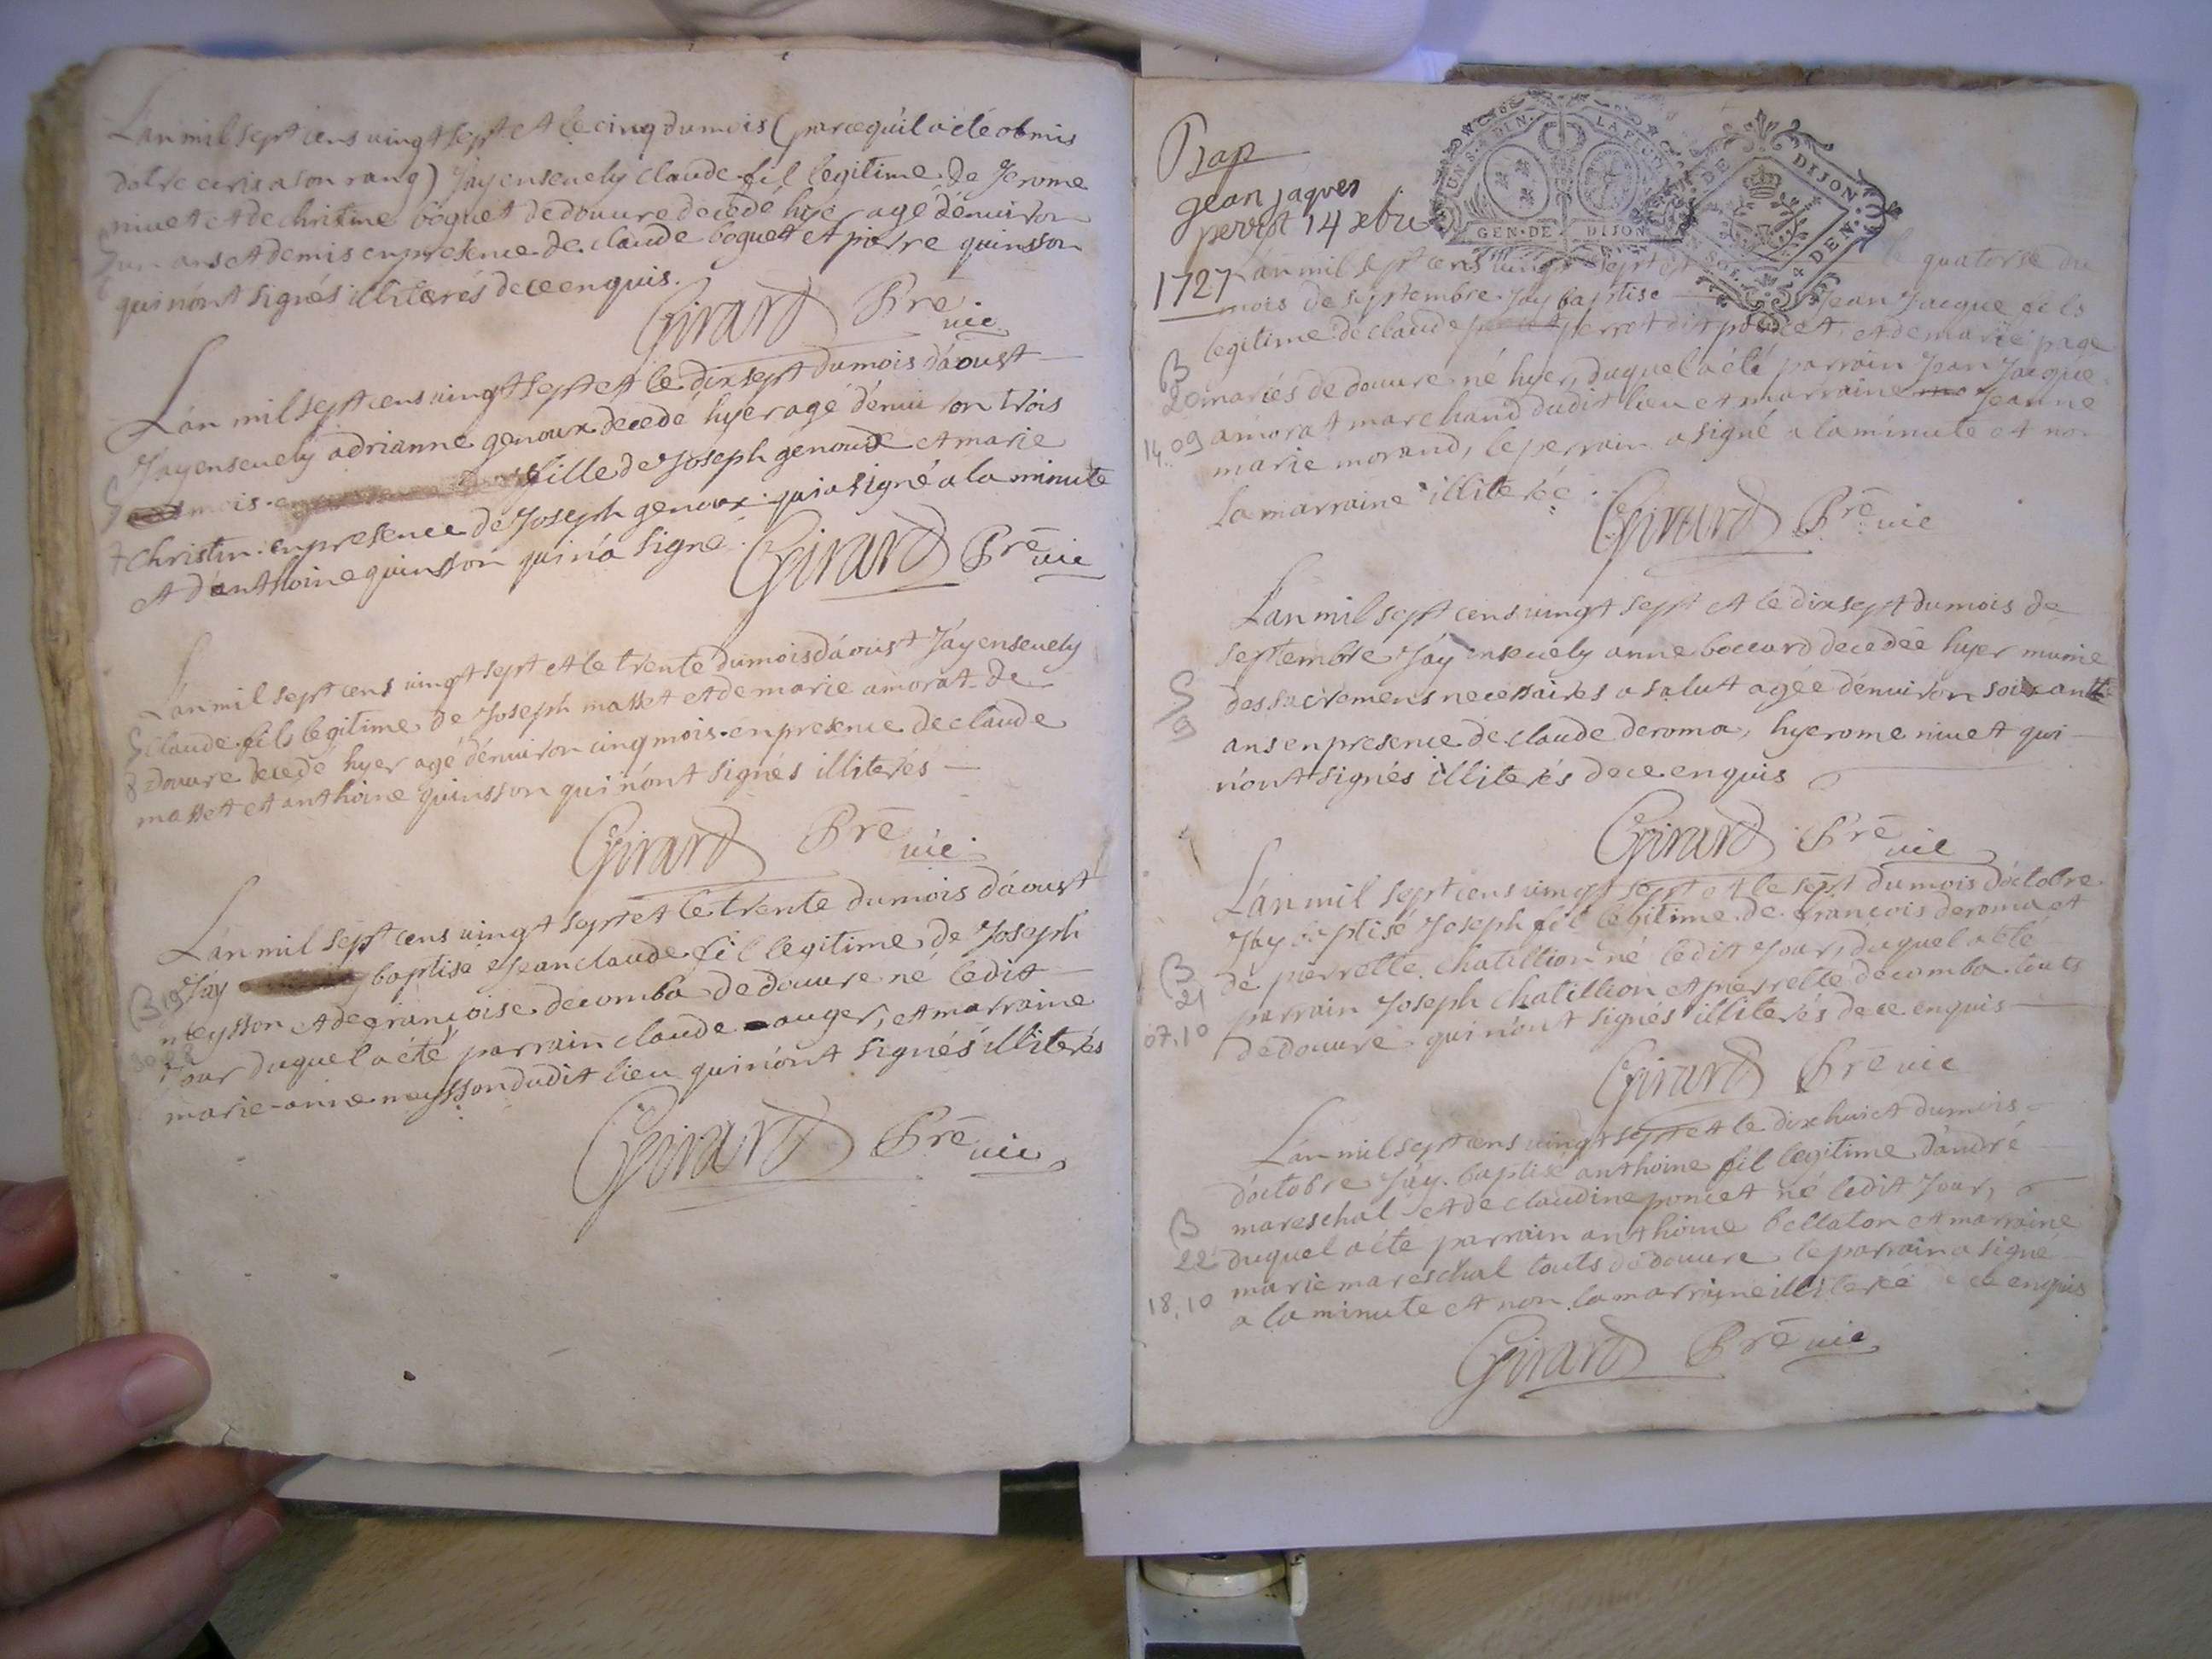 L'an mil sept cens vingt sept et le cinq du mois (parcequ'il a été obmis
d'etre ecris a son rang) J'ay ensevely claude fil legitime de Jerome
nivet et de christine boguet de douvre decedé hyer agé d'environ
S un ans et demis en presence de claude boguet et pierre quinsson
6 qui n'ont signés illiterés de ce enquis.
Girard Prē vic
L'an mil sept cens vingt sept et le dix sept du mois d'aoust
J'ay ensevely adrianne genoux decedé hyer agé d'environ trois
S mois fille de Joseph genoux et marie
7 christin en presence de Joseph genoux qui a signé a la minute
et d'anthoine quinsson qui n'a signé.
Girard Prē vic
L'an mil sept cens vingt sept et le trente du mois d'aoust J'ay ensevely
S claude fils legitime de Joseph masset et de marie amorat de
8 douvre decedé hyer agé d'environ cinq mois en presence de claude
masset et anthoine quinsson qui n'ont signés illiterés
Girard Prē vic
L'an mil sept cens vingt sept et le trente du mois d'aoust
B 19 J'ay baptise Jean claude fil legitime de Joseph
neysson et de françoise decomba de douvre né ledit
Jour duquel a été parrain claude auger, et marraine
marie anne neysson dudit lieu qui n'ont signés illiterés
Girard Prē vic
Bap
Jean Jaques
perrot 14 xbre
1727
UNS.A DIN. LA FEUI
GEN.DE DIJON
DE DIJON
4 DEN.
L'an mil sept cens vingt sept et le quatorse du
mois de septembre J'ay baptise Jean Jacque fils
legitime de claude perrot dit poncet, et de marie page
B 20 mariés de douvre né hyer, duquel a été parrain Jean Jacque
14.09 amorat marchand dudit lieu et marraine Jeanne
marie morand, le perrain a signé a la minute et non
la marraine illiterée.
Girard Prē vic
L'an mil sept cens vingt sept et le dix sept du mois de
septembre J'ay ensevely anne boccard decedée hyer munie
S 9 des sacremens necessaires a salut agée d'environ soixante
ans en presence de claude deroma, hyerome nivet qui
n'ont signés illiterés de ce enquis
Girard Prē vic
L'an mil sept cens vingt sept et le sept du mois d'octobre
J'ay baptisé Joseph fil legitime de françois deroma et
B de perrette chatillion né ledit Jour, duquel a été
21 parrain Joseph chatillion et perrette decomba touts
07.10 de douvre qui n'ont signés illiterés de ce enquis
Girard Prē vic
L'an mil sept cens vingt sept et le dix huict du mois
d'octobre J'ay baptisé anthoine fil legitime d'andré
B mareschal et de claudine poncet né ledit Jour,
22 duquel a été parrain anthoine bellaton et marraine
marie mareschal touts de douvre le parrain a signé
18.10 a la minute et non la marraine illiterée de ce enquis
Girard Prē vic